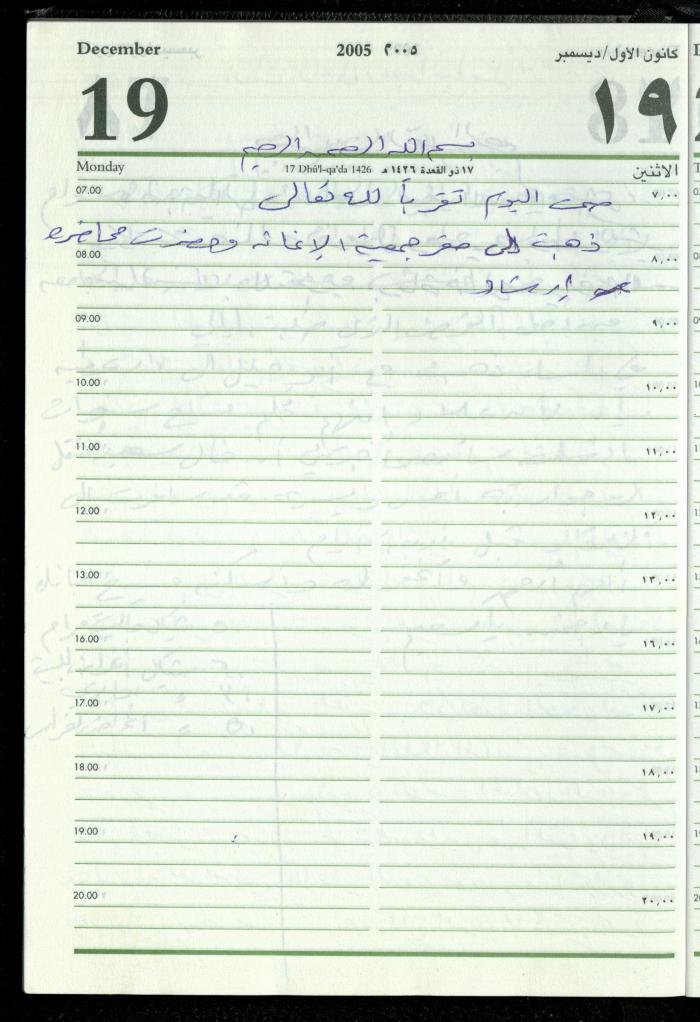 December 2005 ٢٠٠٥ كانون الاول/ديسمبر
19 ١٩
بسم الله الرحمن الرحيم
Monday 17 Dhû'l-qa'da 1426 ١٧ ذو القعدة ١٤٢٦ هـ الاثنين
07.00 ٧,٠٠
صمت اليوم تقرباً لله تعالى
ذهبت إلى مقر جمعية الإغاثة وحضرت محاضرة
08.00 ٨,٠٠
إرشاد
09.00 ٩,٠٠
10.00 ١٠,٠٠
11.00 ١١,٠٠
12.00 ١٢,٠٠
13.00 ١٣,٠٠
16.00 ١٦,٠٠
17.00 ١٧,٠٠
18.00 ١٨,٠٠
19.00 ١٩,٠٠
20.00 ٢٠,٠٠